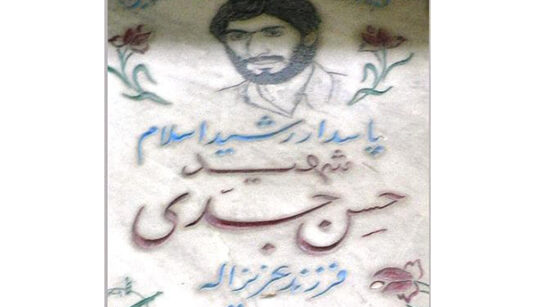 پاسدار رشید اسلام
شهید
حسن جَدی
فرزند عزیزاله